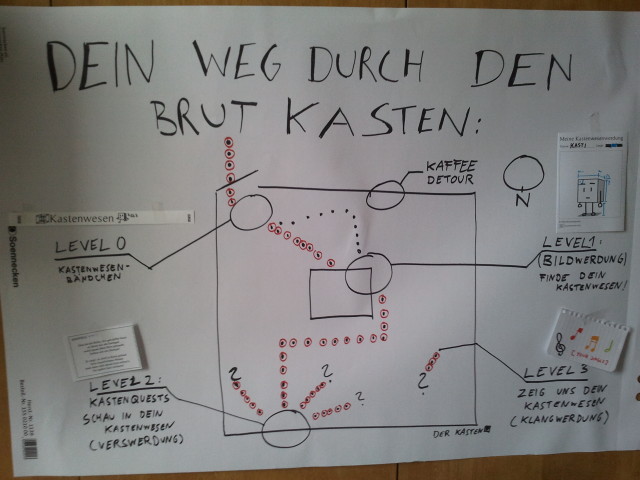 DEIN WEG DURCH DEN
BRUT KASTEN:
KAFFEE
DETOUR
N
KASTI
Kastenwesen
Soennecken
LEVEL 0
KASTENWESEN-
BÄNDCHEN
LEVEL 1:
(BILDWERDUNG)
FINDE DEIN
KASTENWESEN!
LEVEL 2:
KASTENQUESTS
SCHAU IN DEIN
KASTENWESEN
(VERSWERDUNG)
?
?
?
?
LEVEL 3
ZEIG UNS DEIN
KASTENWESEN
(KLANGWERDUNG)
DER KASTEN